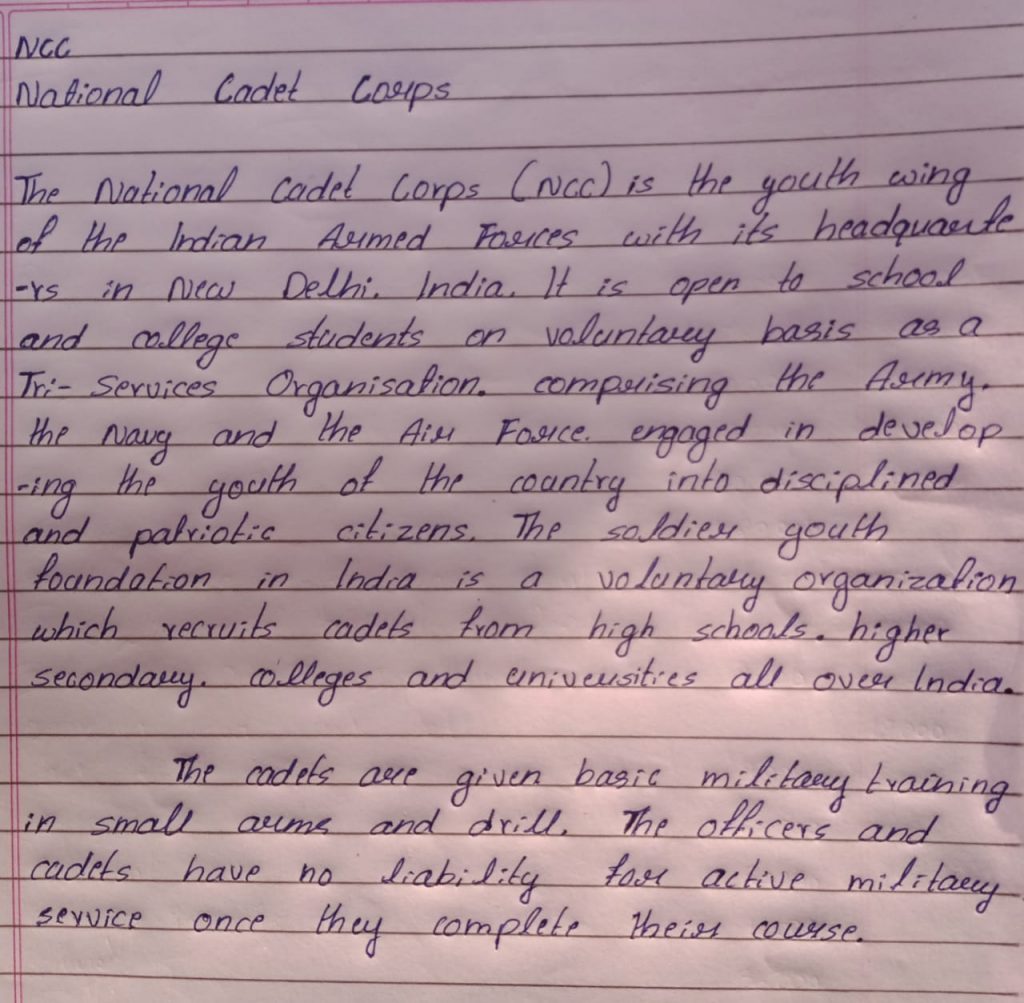 NCC
National Cadet Corps
The National Cadet Corps (NCC) is the youth wing
of the Indian Armed Forces with its headquarte
-rs in New Delhi. India. It is open to school
and college students on voluntary basis as a
Tri- Services Organisation. comprising the Army.
the Navy and the Air Force. engaged in develop
-ing the youth of the country into disciplined
and patriotic citizens. The soldier youth
foundation in India is a voluntary organization
which recruits cadets from high schools. higher
secondary. colleges and universities all over India.
The cadets are given basic military training
in small arms and drill. The officers and
cadets have no liability for active military
service once they complete their course.